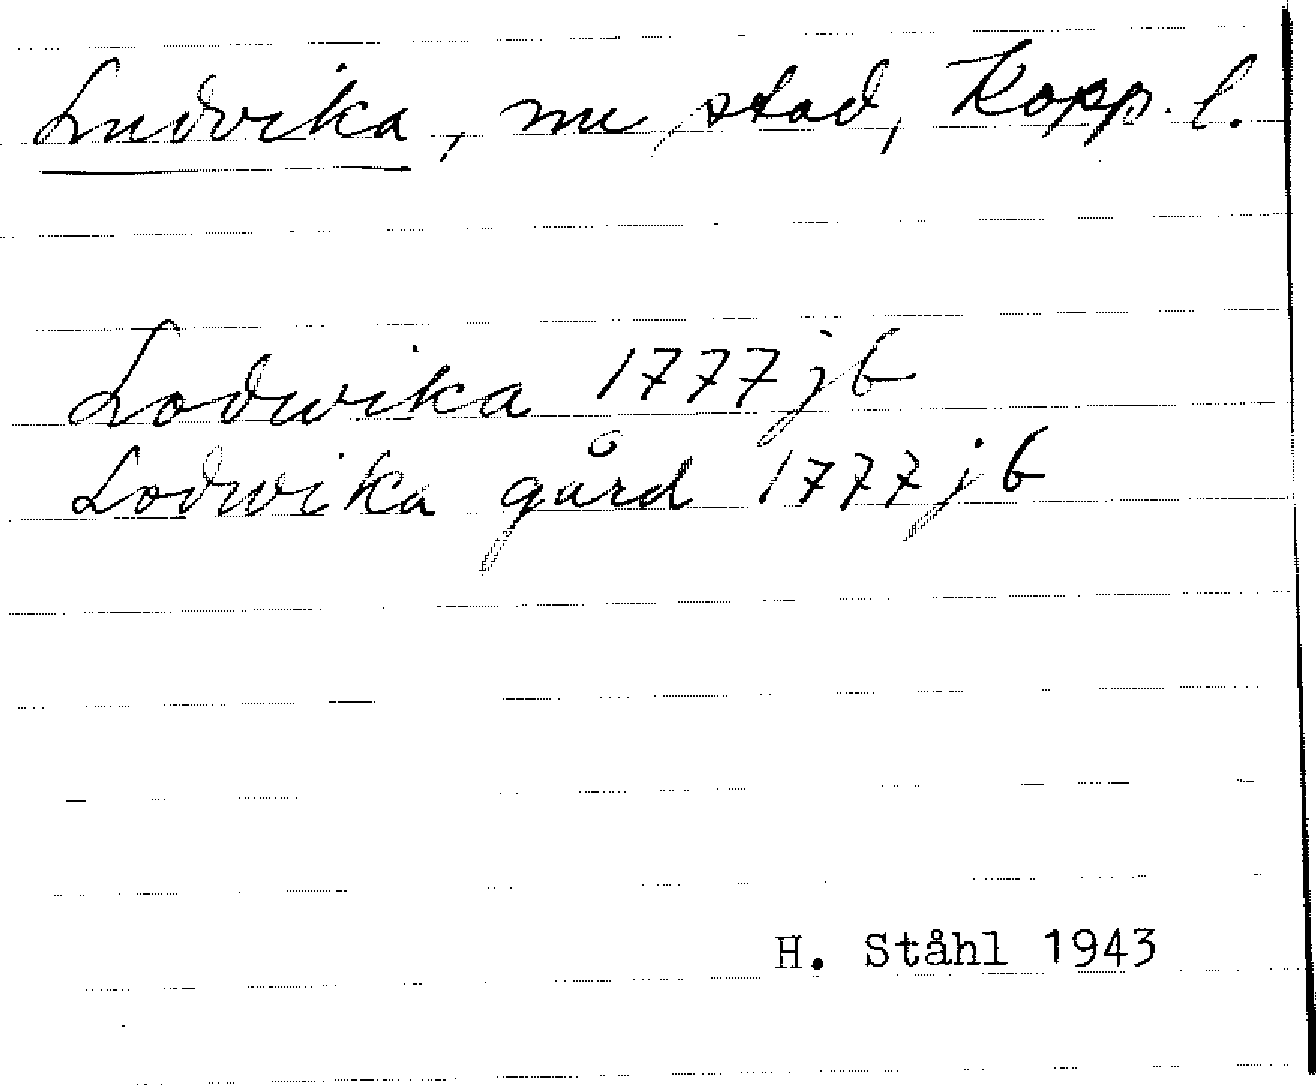 Ludvika, nu stad, Kopp. l.
Lodwika 1777 jb
Lodwika gård 1777 jb
H. Ståhl 1943